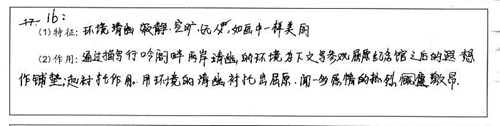 16:
(1)特征：环境清幽 寂静、空旷、优美，如画中一样美的
(2)作用：通过描写行吟阁畔两岸清幽的环境为下文写参观屈原纪念馆之后的遐想
作铺垫；起衬托作用。用环境的清幽衬托出屈原、闻一多感情的热烈、激昂.